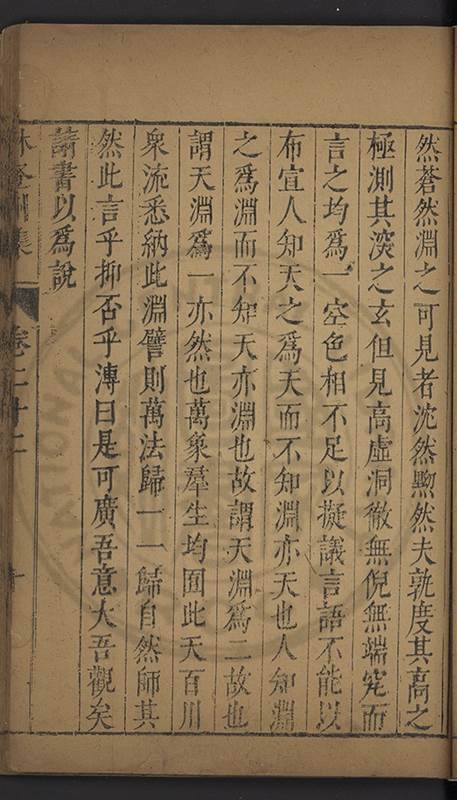 然蒼然淵之可見者沈然黝然夫孰度其高之
極測其深之玄但見高虛洞徹無倪無端究而
言之均為一空色相不足以擬議言語不能以
布宣人知天之為天而不知淵亦天也人知淵
之為淵而不知天亦淵也故謂天淵為二故也
謂天淵為一亦然也萬象羣生均囿此天百川
衆流悉納此淵譬則萬法歸一一歸自然師其
然此言乎抑否乎溥曰是可廣吾意大吾觀矣
請書以為說
集
卷二十二